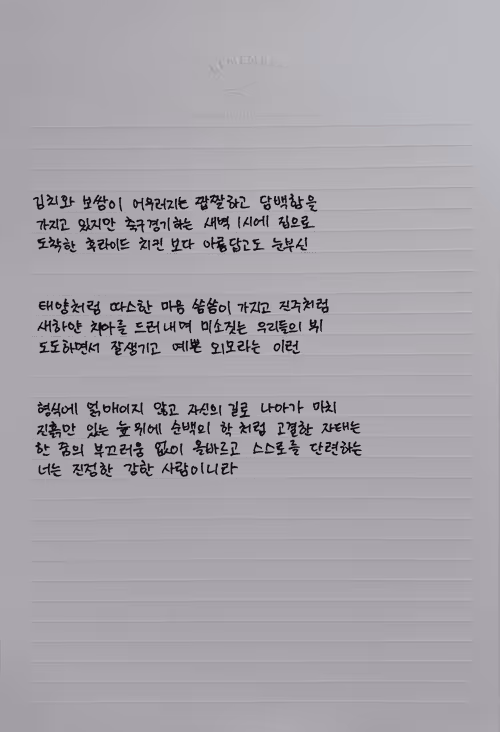 김치와 보쌈이 어우러지는 짭짤하고 담백함을
가지고 있지만 축구경기하는 새벽 1시에 집으로
도착한 후라이드 치킨 보다 아름답고도 눈부신
태양처럼 따스한 마음 씀씀이 가지고 진주처럼
새하얀 치아를 드러내며 미소짓는 우리들의 뷔
도도하면서 잘생기고 예쁜 외모라는 이런
형식에 얽매이지 않고 자신의 길로 나아가 마치
진흙만 있는 늪 위에 순백의 학 처럼 고결한 자태는
한 줌의 부끄러움 없이 올바르고 스스로를 단련하는
너는 진정한 강한 사람이니라